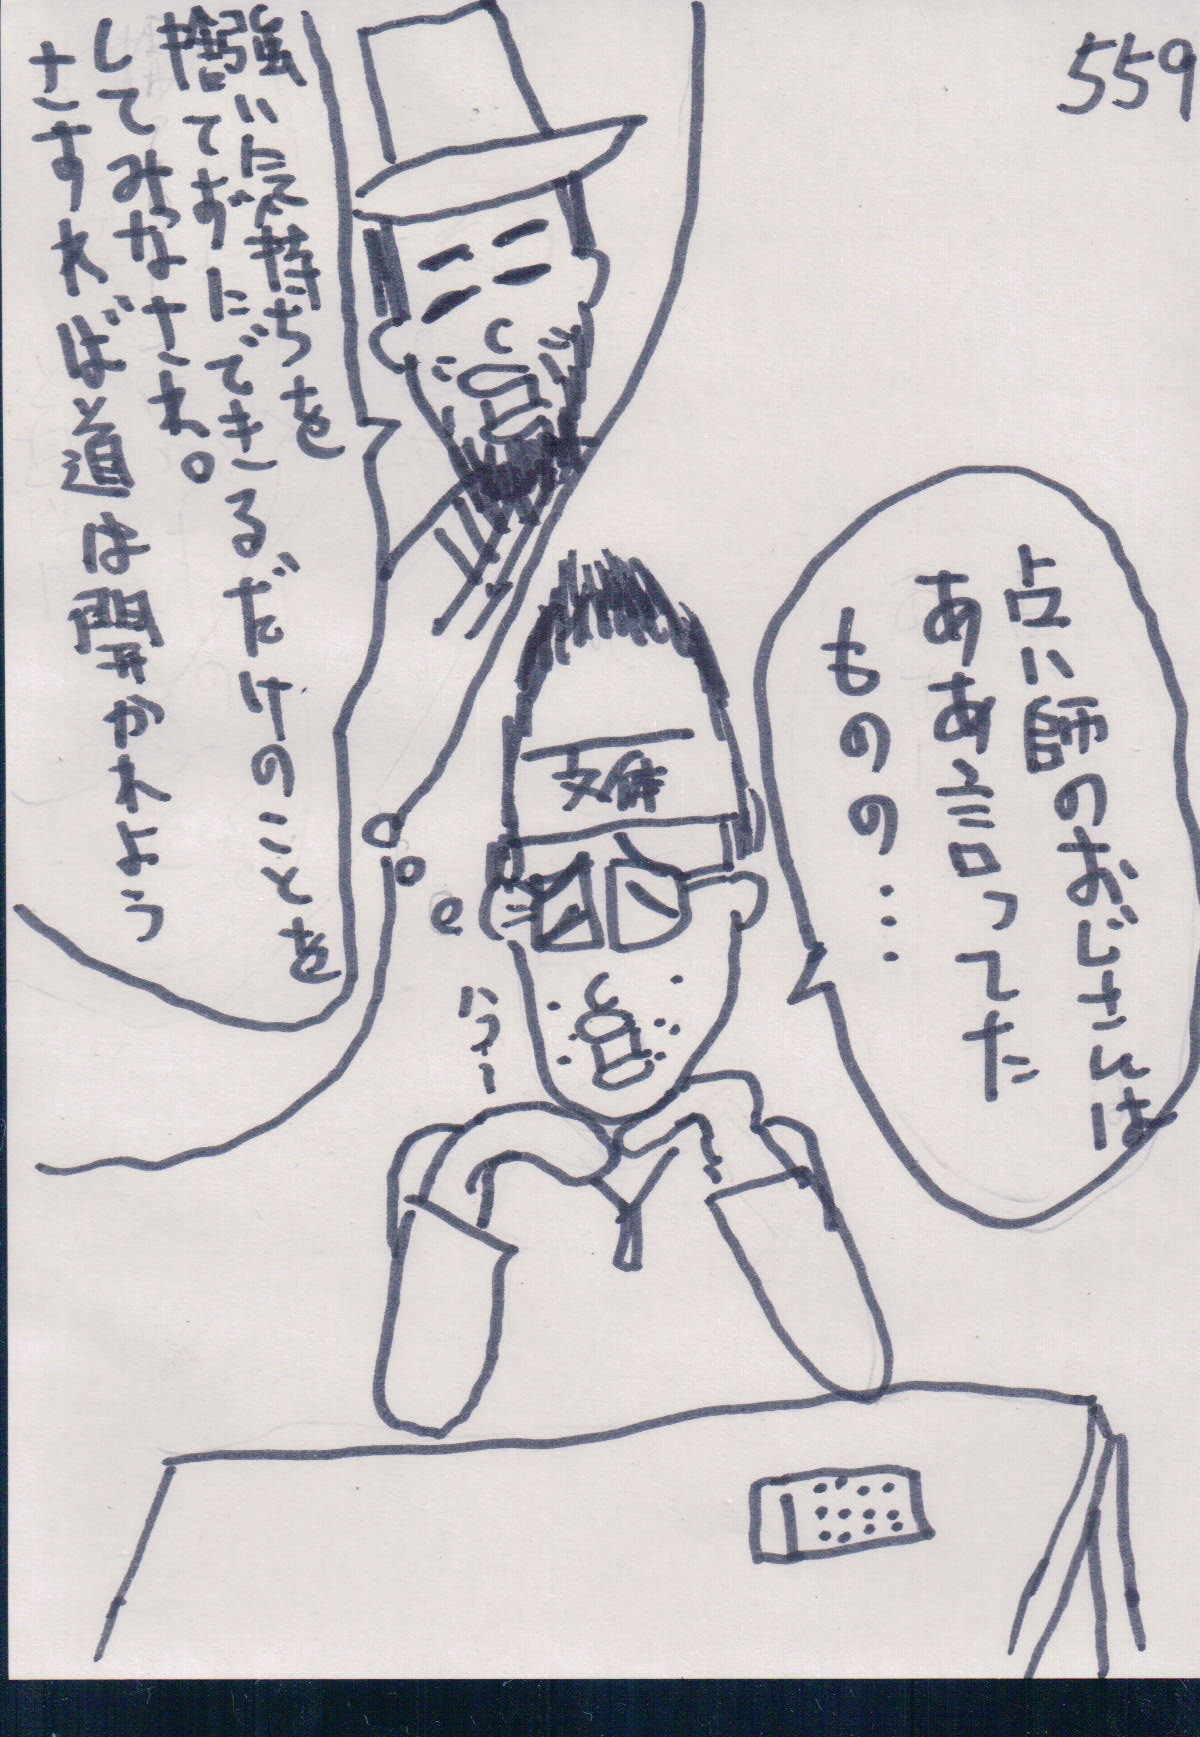 559
占い師のおじさんは
ああ言ってた
ものの…
強い気持ちを
捨てずにできるだけのことを
してみなされ。
さすれば道は開かれよう
うー